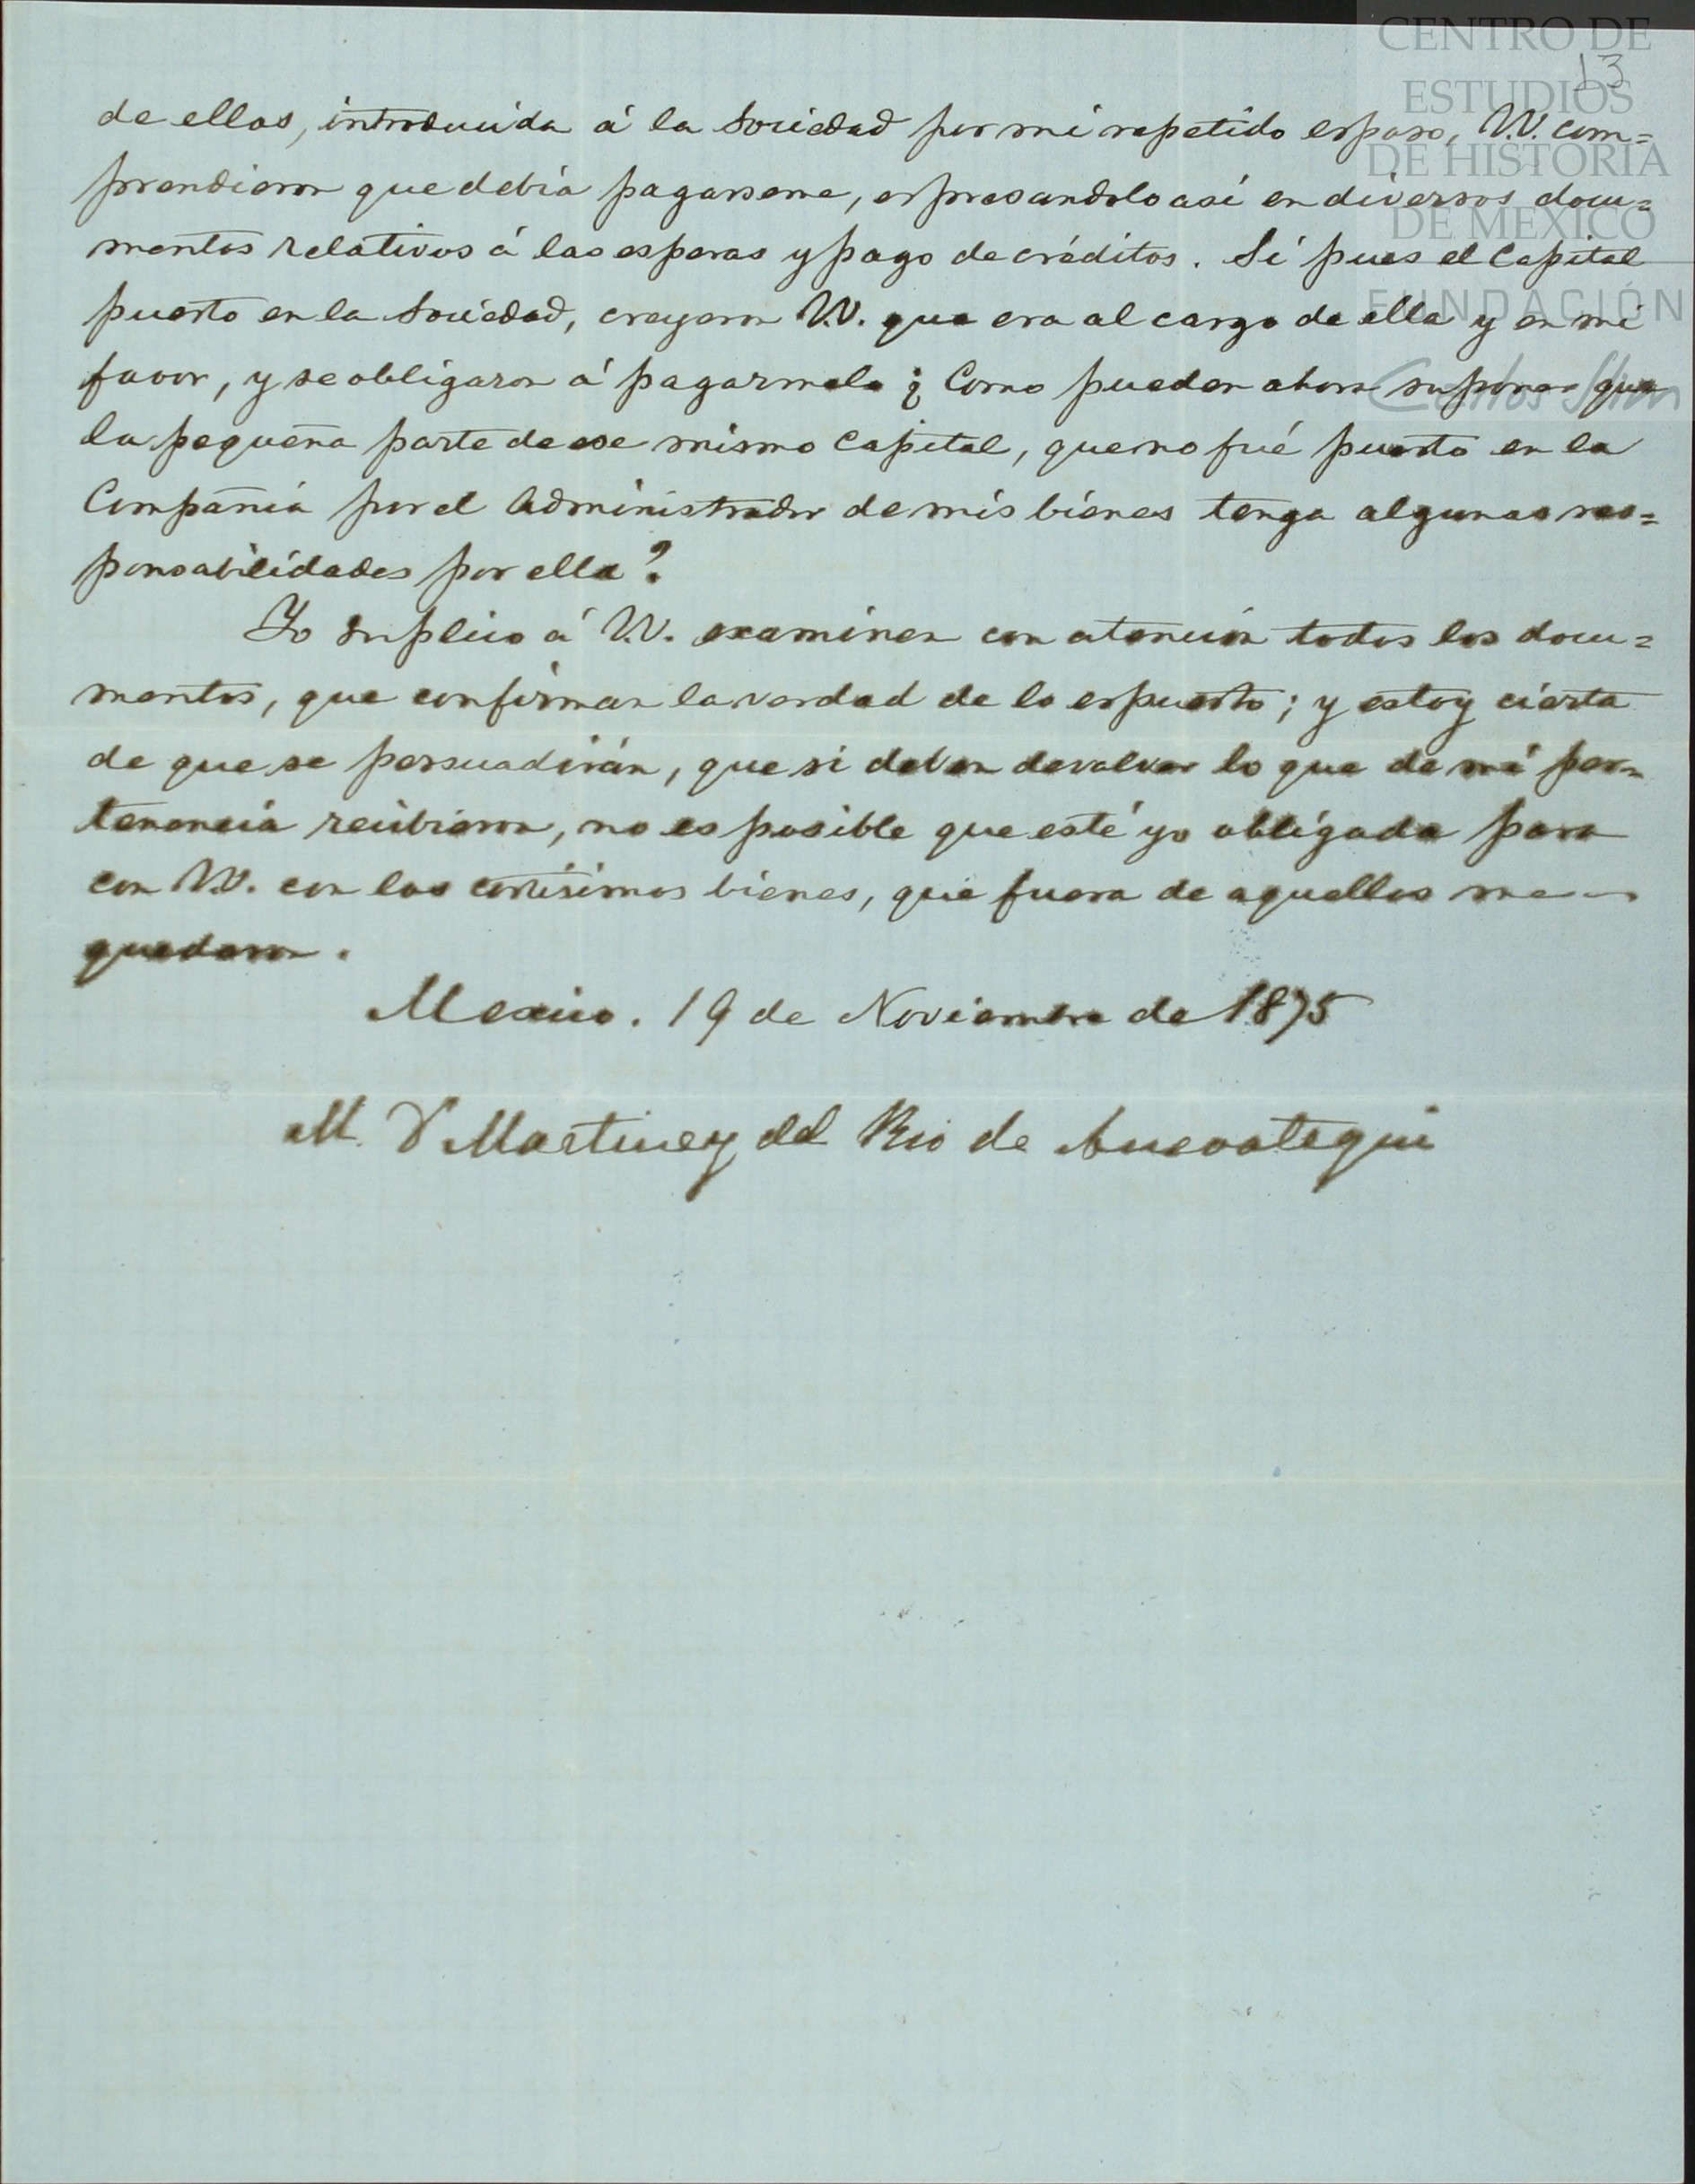 CENTRO DE
ESTUDIOS
DE HISTORIA
DE MEXICO
FUNDACIÓN
Carlos Slim
13
de ellos, introducida á la Sociedad por mi repetido esposo, V.V. com=
prendieron que debia pagarseme, espresandolo así en diversos docu=
mentos relativos á las esperas y pago de créditos. Si pues el Capital
puesto en la Sociedad, creyeron V.V. que era al cargo de ella y en mi
favor, y se obligaron á pagarmelo ¿ Como pueden ahora suponer que
la pequeña parte de ese mismo Capital, que no fué puesto en la
Compañia por el Administrador de mis bienes tenga algunas res=
ponsabilidades por ella?
Yo suplico á V.V. examinen con atencion todos los docu=
mentos, que confirman la verdad de lo espuesto; y estoy cierta
de que se persuadirán, que si deben devolver lo que de mi per=
tenencia recibieron, no es posible que esté yo obligada para
con V.V. con los cortisimos bienes, que fuera de aquellos me
quedaron.
Mexico. 19 de Noviembre de 1875
M. V Martinez del Rio de Ansoategui